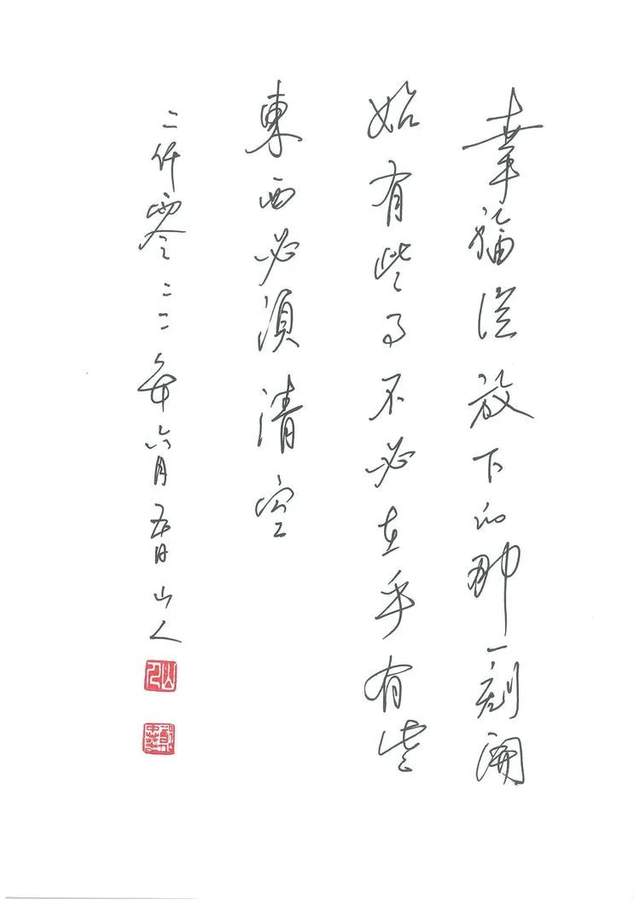 幸福從放下的那一刻開
始有些事不必在乎有些
東西必須清空
二仟零二二年六月五日山人